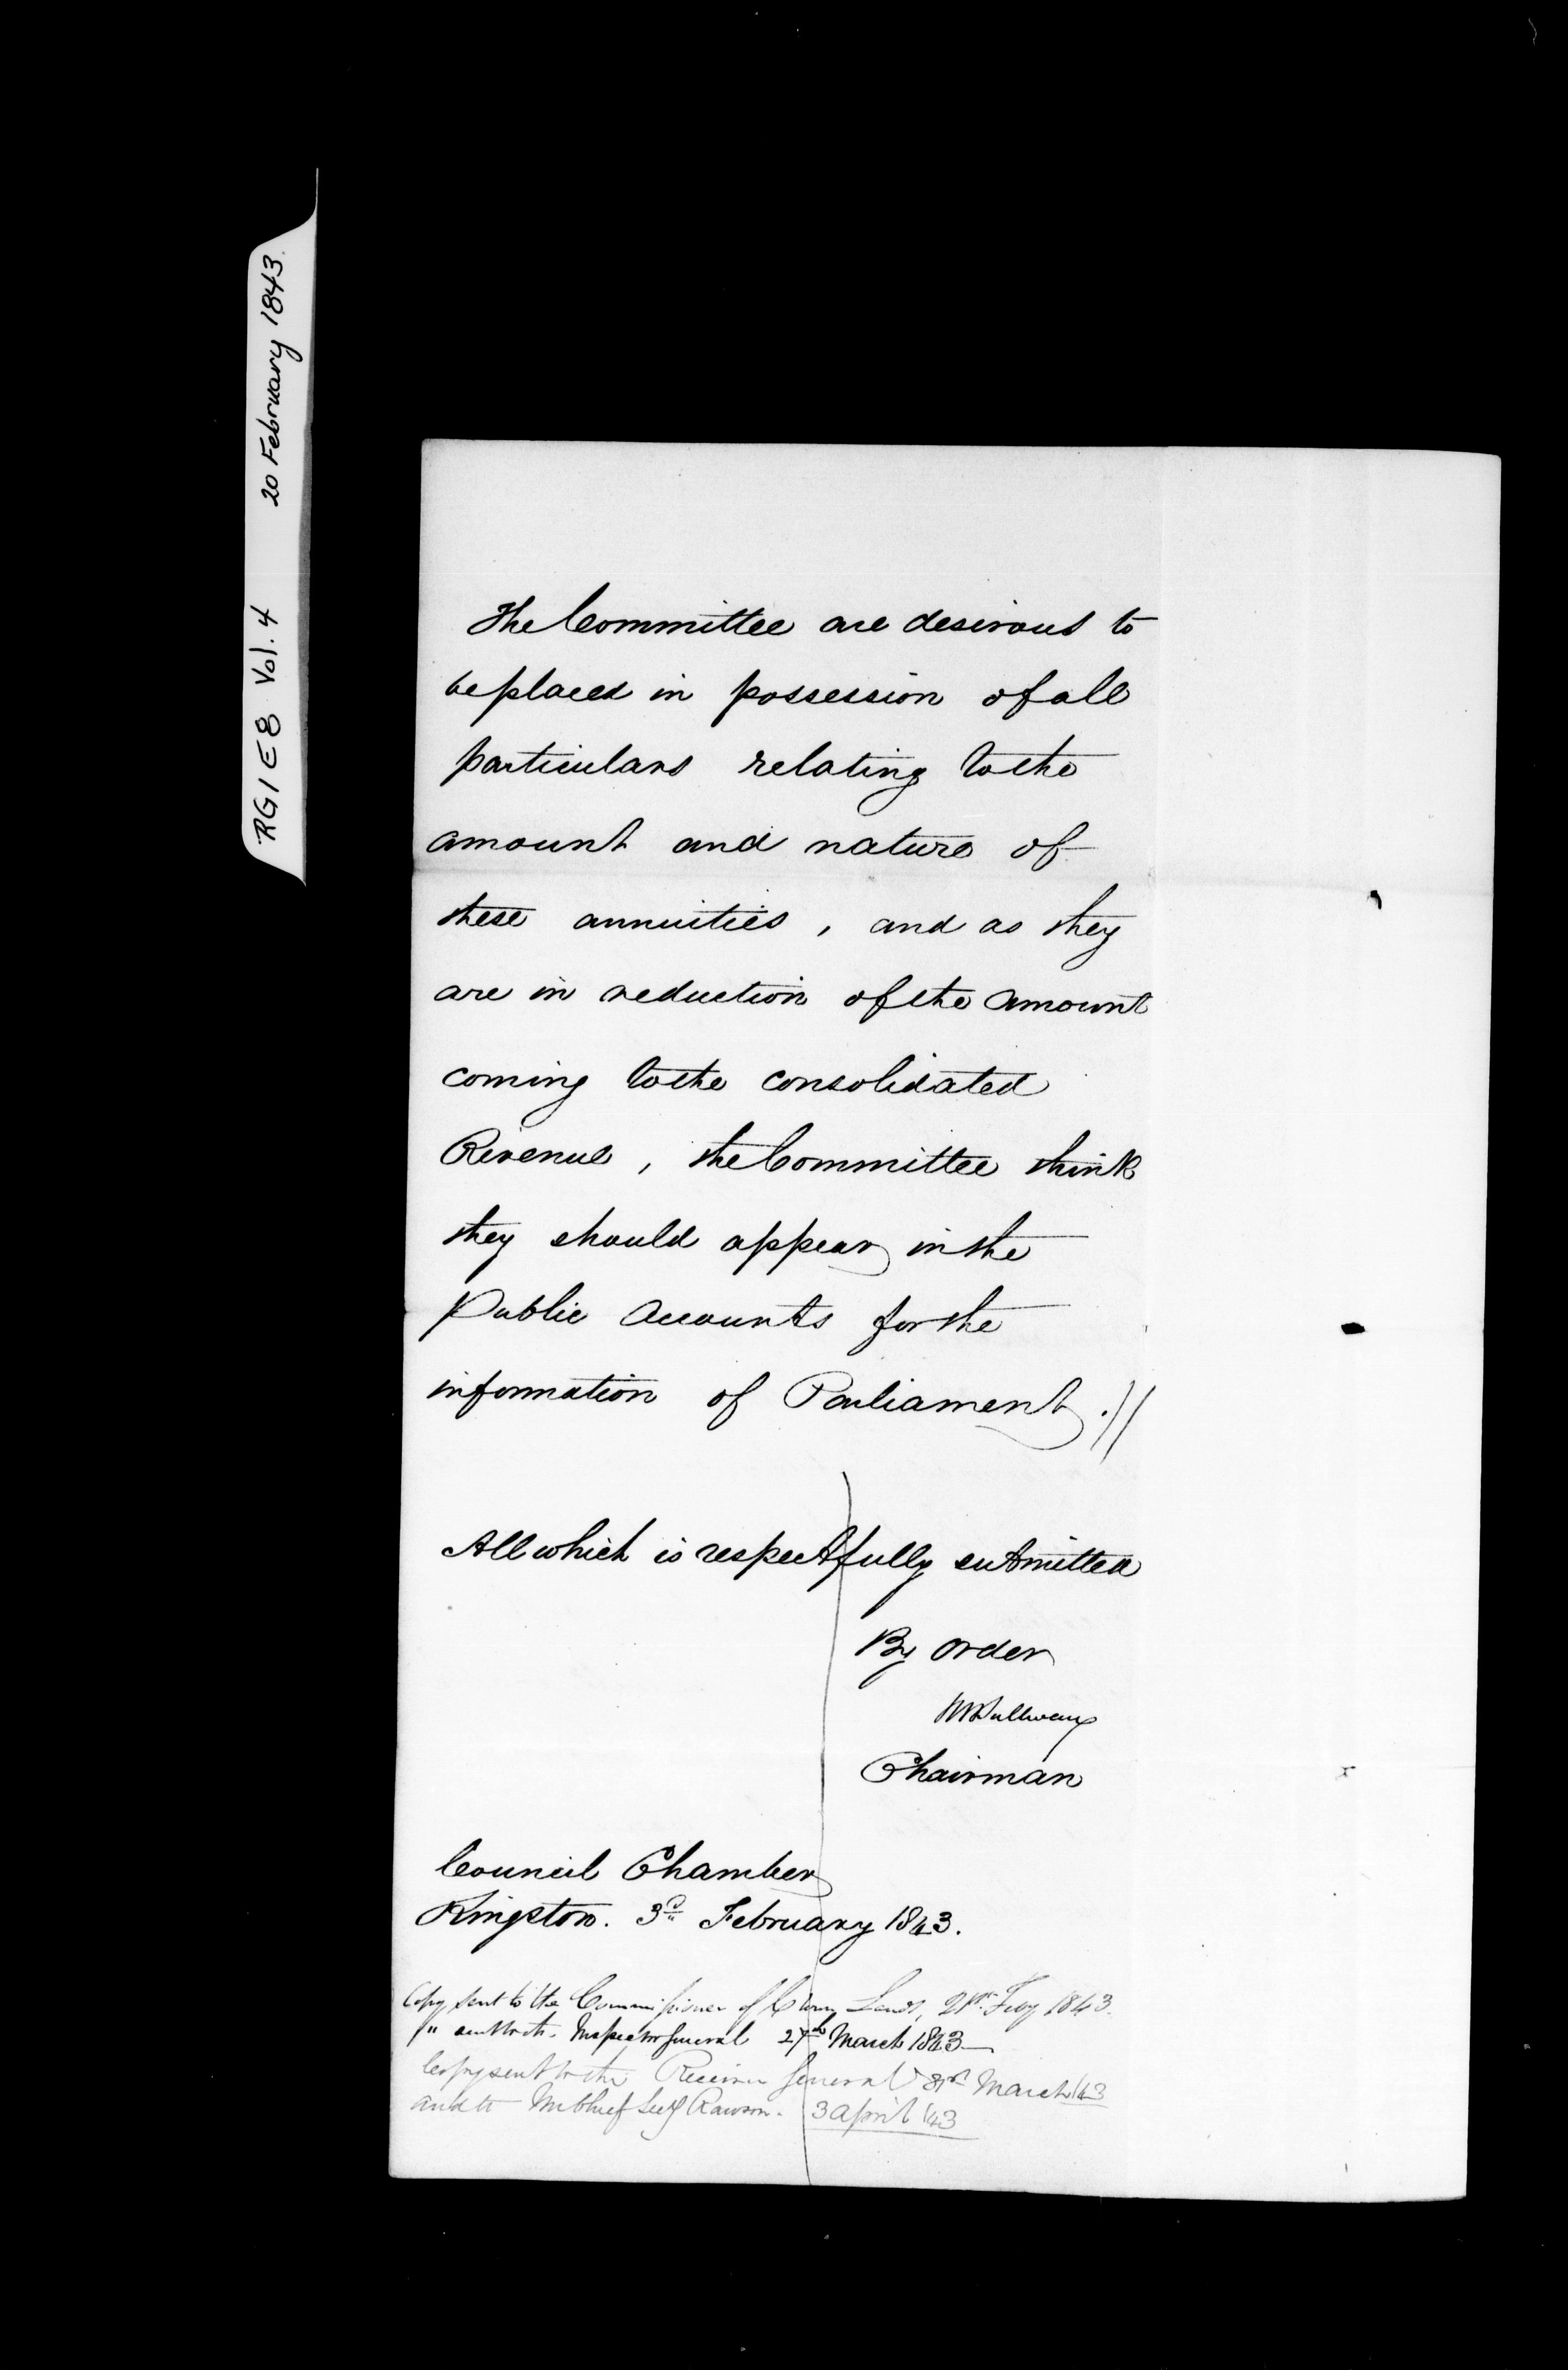 RG1 E8 Vol. 4 20 February 1843.
The Committee are desirous to
be placed in possession of all
particulars relating to the
amount and nature of
these annuities, and as they
are in reduction of the amount
coming to the consolidated
Revenue, the Committee think
they should appear in the
Public Accounts for the
information of Parliament.//
All which is respectfully submitted
By order
Chairman
Council Chamber
Kingston. 3d February 1843.
Copy sent to the Commissioner of Crown Lands, 21st Feby 1843.
" sent to the Inspector General 27th March 1843
Copy sent to the Receiver General March 43
and to Mr Chief Secy Rawson. 3 April 43